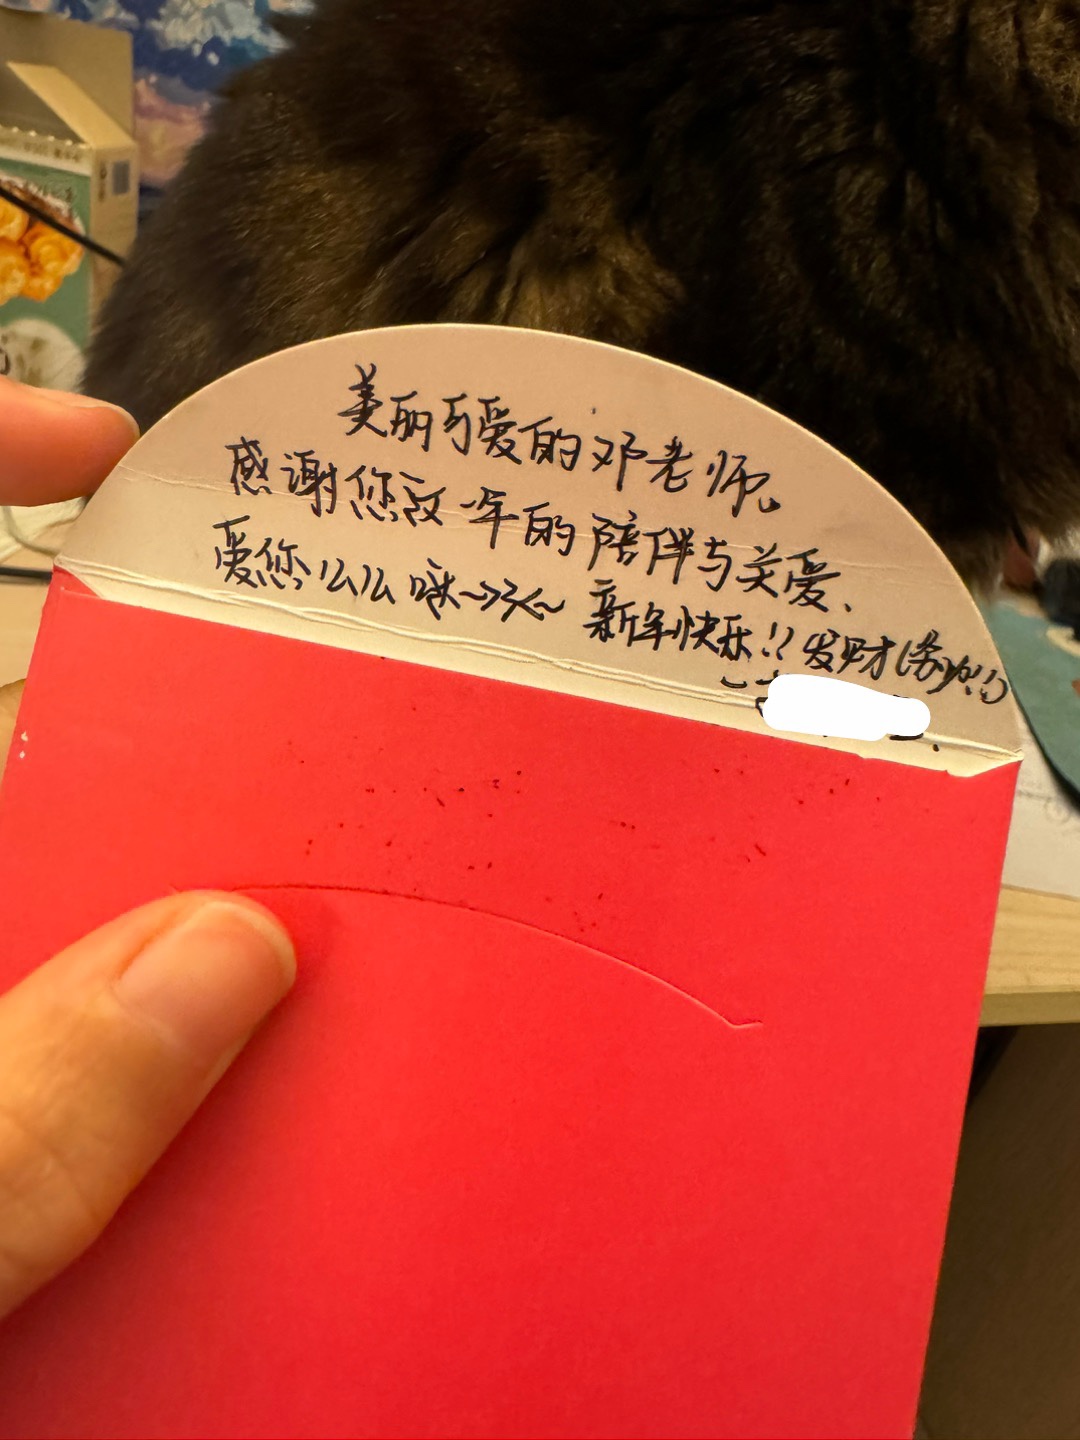 美丽可爱的邓老师。
感谢您这一年的陪伴与关爱、
爱您么么啾~>3<~ 新年快乐!! 发财